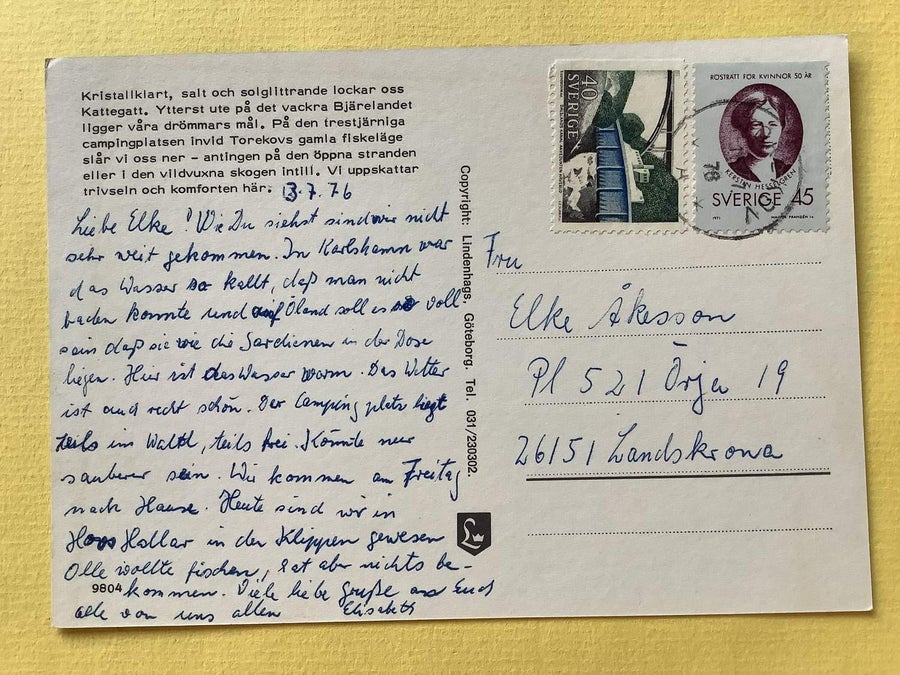 Kristallklart, salt och solglittrande lockar oss
Kattegatt. Ytterst ute på det vackra Bjärelandet
ligger våra drömmars mål. På den trestjärniga
campingplatsen invid Torekovs gamla fiskeläge
slår vi oss ner – antingen på den öppna stranden
eller i den vildvuxna skogen intill. Vi uppskattar
trivseln och komforten här.
13.7.76
Liebe Elke! Wie Du siehst sind wir nicht
sehr weit gekommen. In Karlshamn war
das Wasser so kallt, daß man nicht
baden konnte und auf Öland soll es so voll
sein daß sie wie die Sardienen in der Dose
liegen. Hier ist das Wasser warm. Das Wetter
ist auch recht schön. Der Campingplatz liegt
teils im Waltd, teils frei. Könnte nur
sauberer sein. Wir kommen am Freitag
nach Hause. Heute sind wir in
Hovs Hallar in den Klippen gewesen
Olle wollte fischen, hat aber nichts be-
kommen. Viele liebe Grüße an Euch
alle von uns allen Elisabeth
9804
Copyright: Lindenhags, Göteborg. Tel. 031/230302.
L
40
SVERIGE
RÖSTRÄTT FÖR KVINNOR 50 ÅR
KERSTIN HESSELGREN
SVERIGE 45
1971
76
Fru
Elke Åkesson
Pl 521 Örja 19
26151 Landskrona